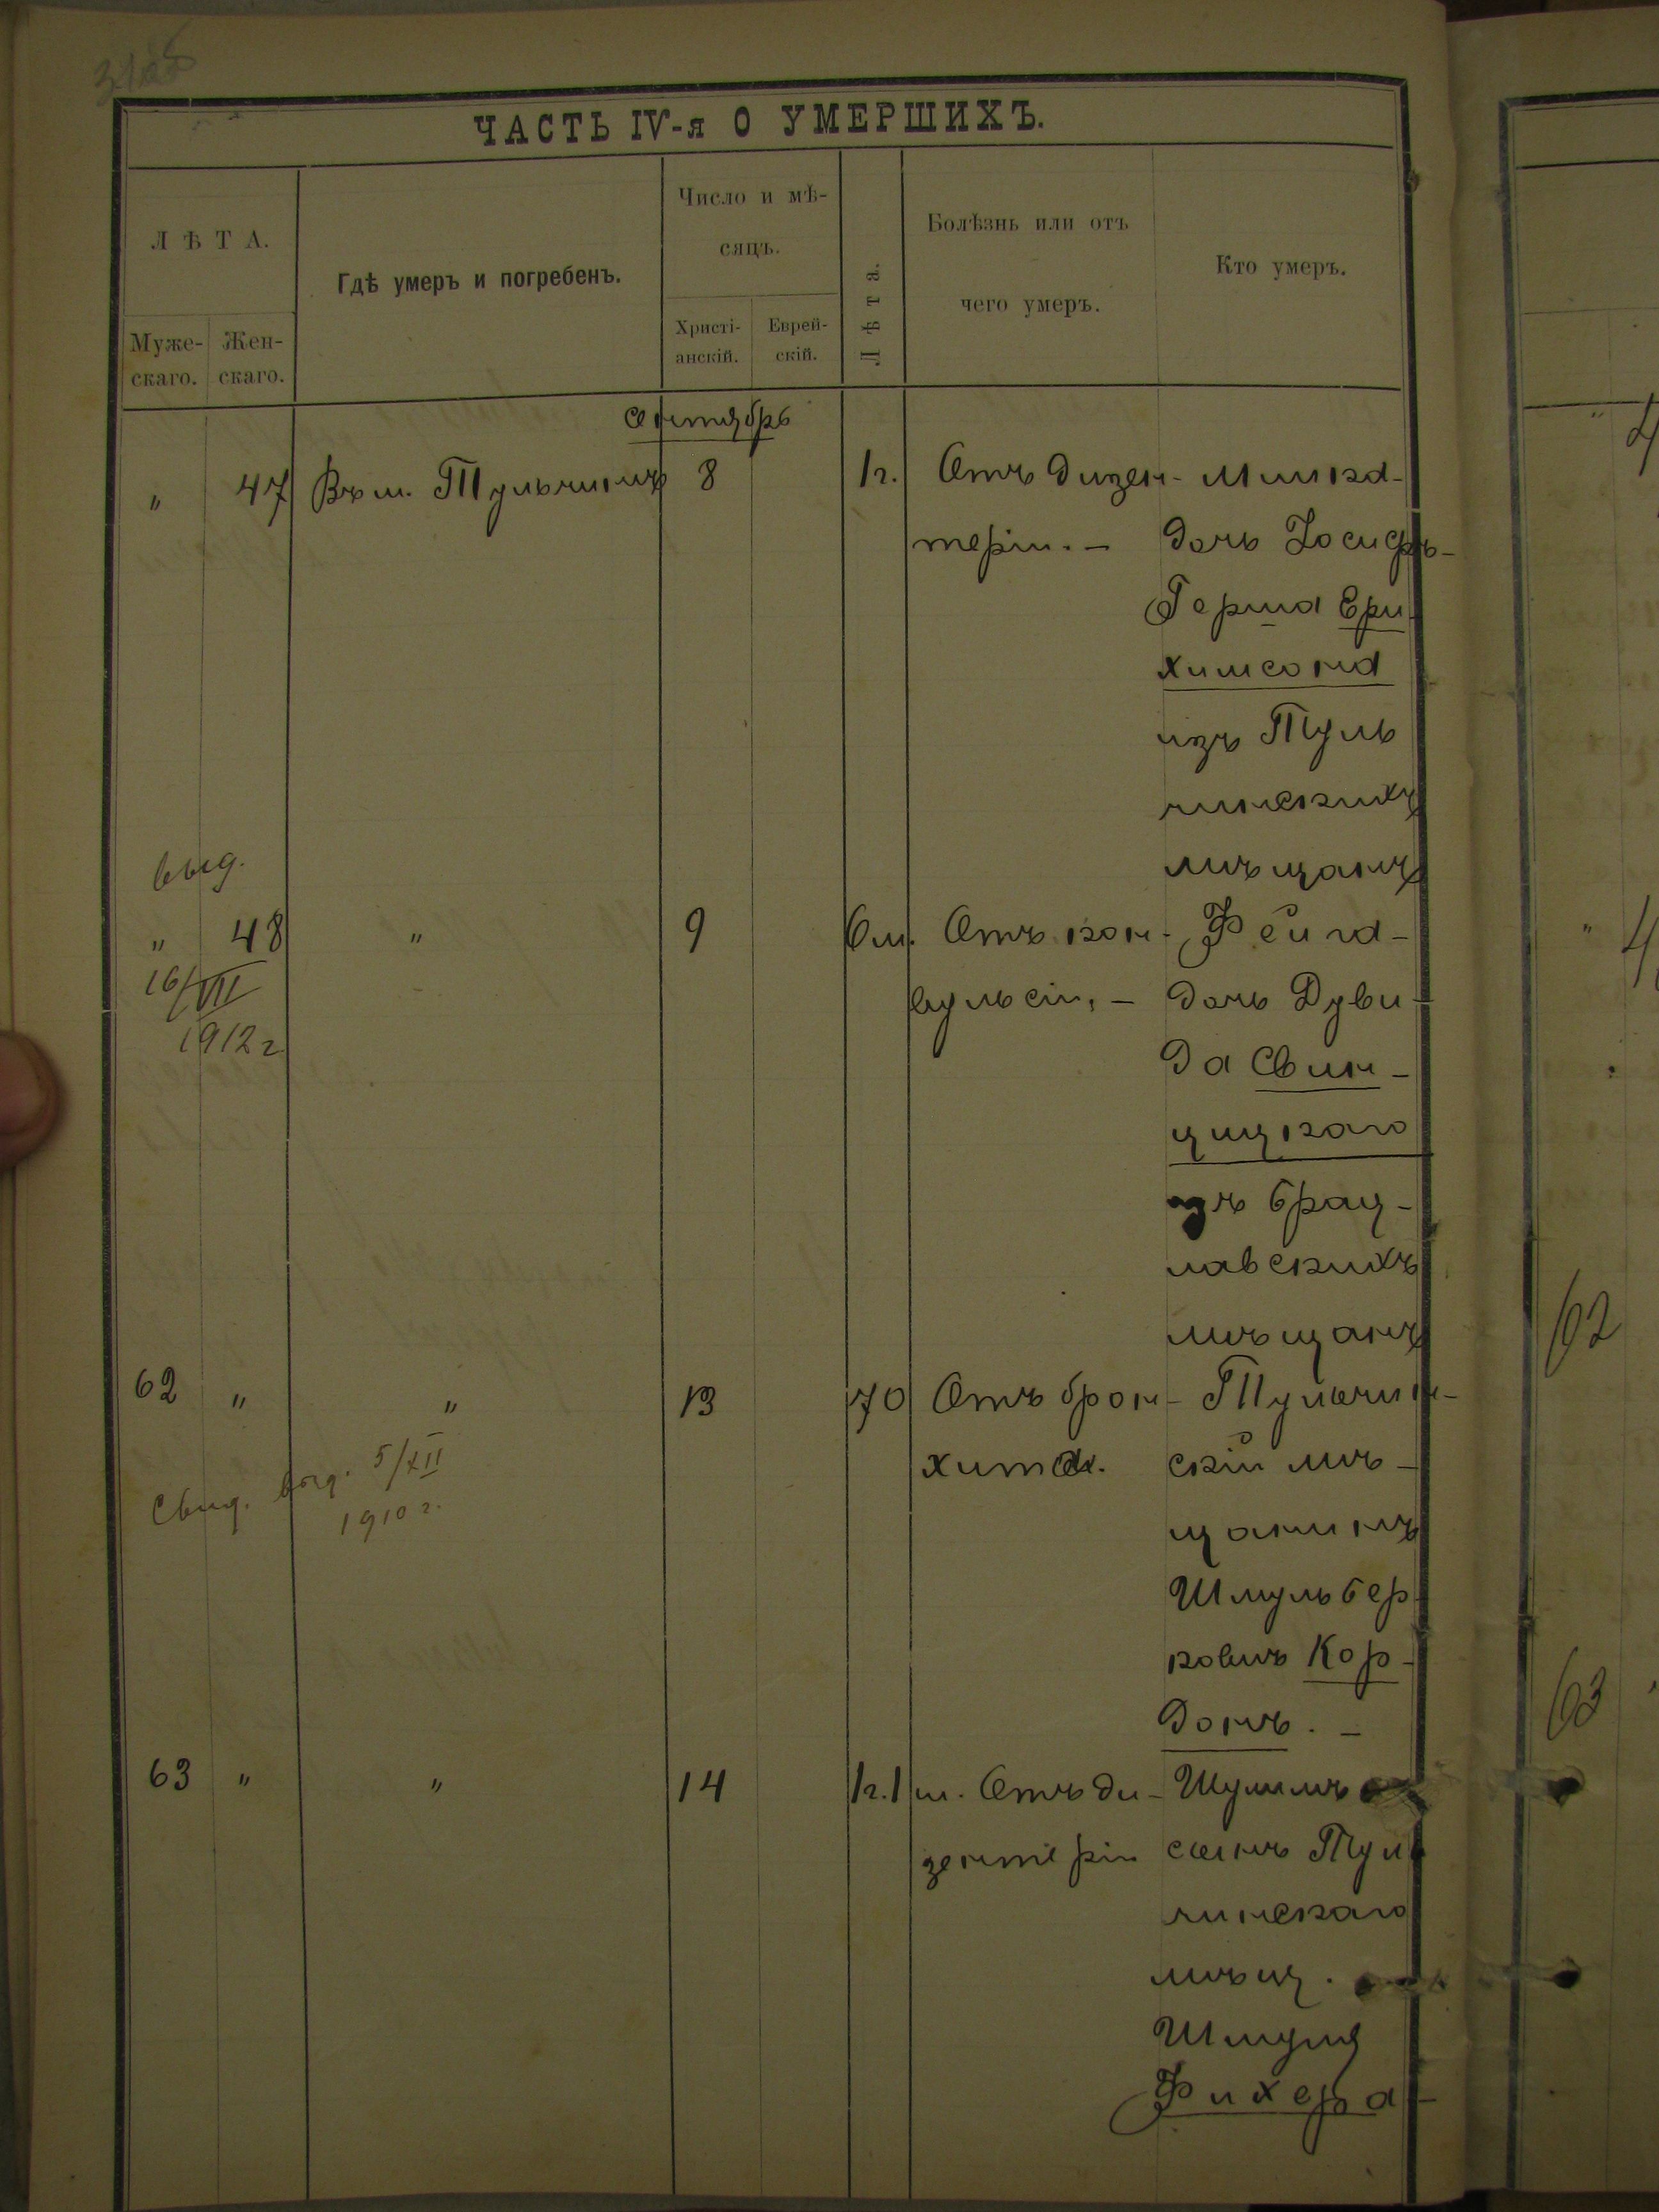 31об
ЧАСТЬ IV-я О УМЕРШИХЪ.
ЛѢТА.
Муже-
скаго.
Жен-
скаго.
Гдѣ умеръ и погребенъ.
Число и мѣ-
сяцъ.
Христі-
анскій.
Еврей-
скій.
Лѣта.
Болѣзнь или отъ
чего умеръ.
Кто умеръ.
Сентябрь
" 47 Въ м. Тульчинѣ 8 1г. Отъ дизен-
теріи. –
Минка-
дочь Іосифъ-
Герша Ери
химсона
изъ Туль
чинскихъ
мѣщанъ
выд.
" 48 " 9 6м. Отъ кон-
вульсіи, –
16/VII
1912 г
Фейга-
дочь Дуви-
да Свин-
цицкаго
изъ Брац-
лавскихъ
мѣщанъ
62 " " 13 70 Отъ брон-
хита.
Свид. выд. 5/XII
1910 г.
Тульчин-
скій мѣ-
щанинъ
Шмуль Бер
ковичъ Кор-
донъ. –
63 " " 14 1г.1м. Отъ ди-
зентеріи
Шулимъ
сынъ Туль
чинскаго
мѣщ.
Шмуля
Фихера-
" 4
" 4
62
63